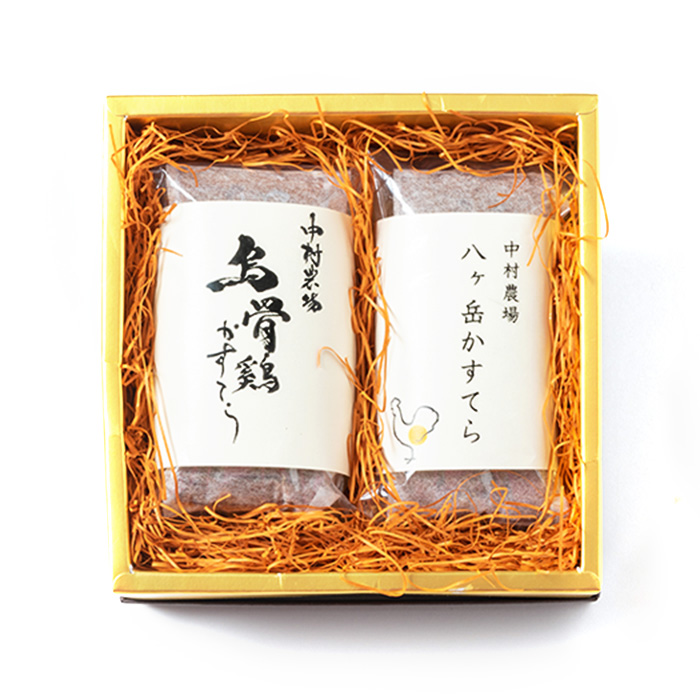 中村農場
烏骨鶏
かすてら
中村農場
八ヶ岳かすてら